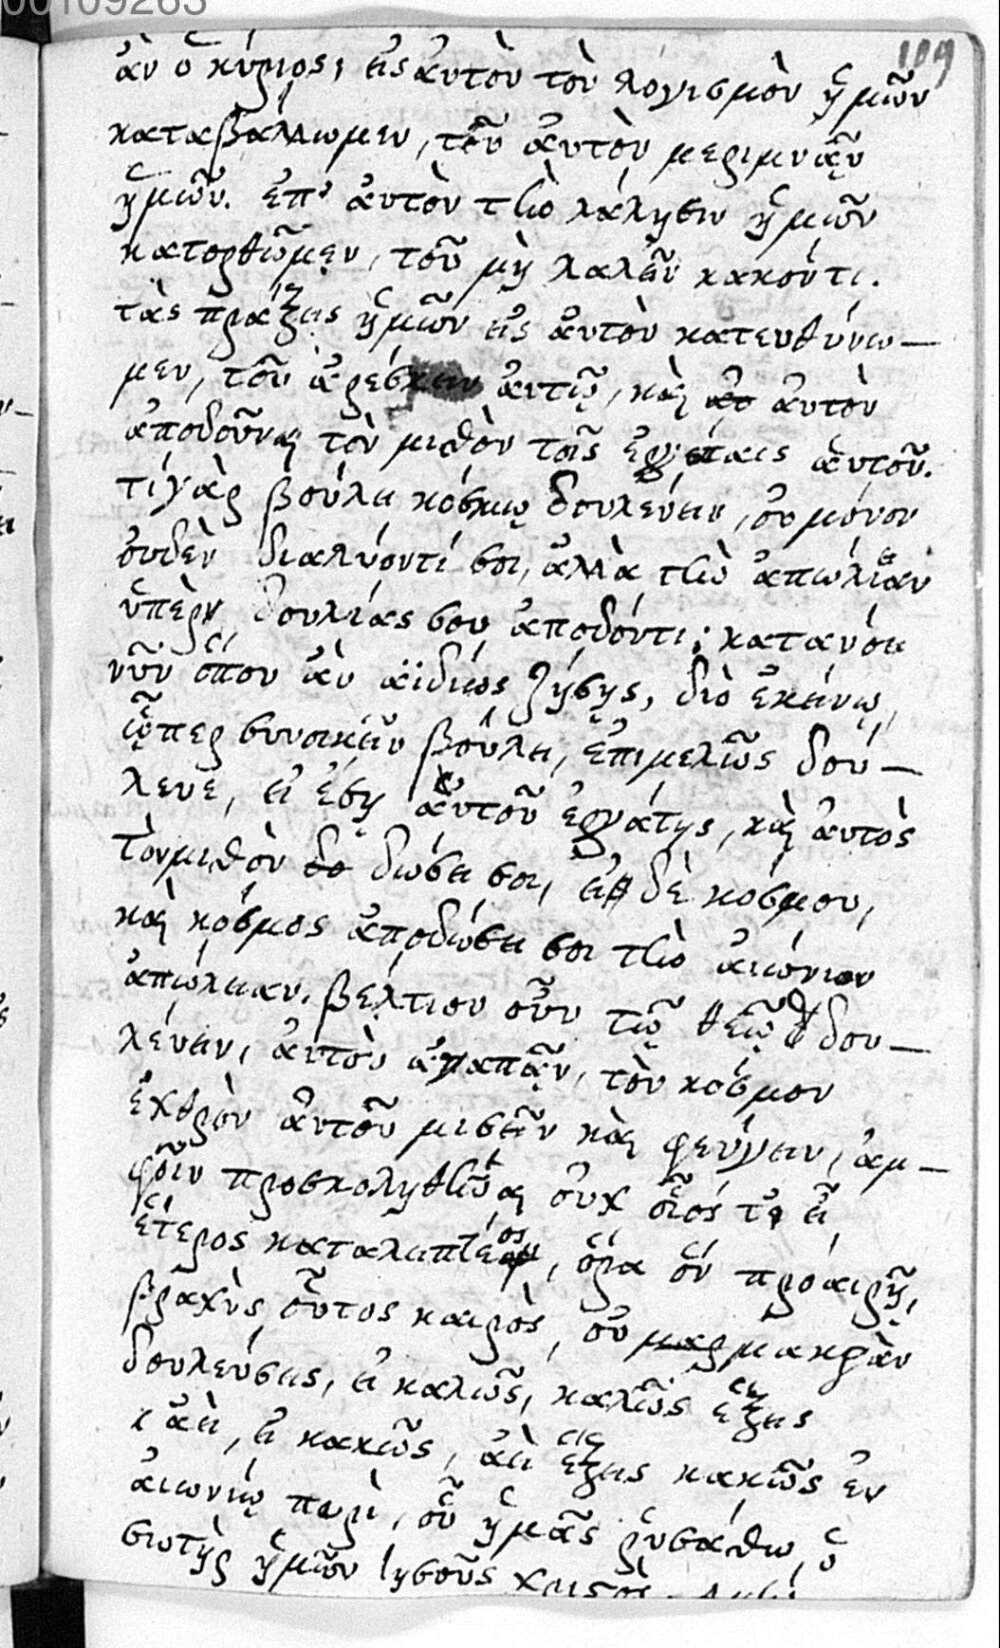 00109263
109
ἂν ὁ κύριος, εἰς ἀυτὸν τὸν λογισμὸν ἡμῶν
καταβάλλωμεν, τοῦ ἀυτὸν μεριμνᾷν
ἡμῶν. ἐπ' ἀυτὸν τὴν λάλησιν ἡμῶν
κατορθῶμεν, τοῦ μὴ λαλεῖν κακόν τι.
τὰς πράξεις ἡμῶν εἰς ἀυτὸν κατευθύνω—
μεν, τοῦ ἀρέσκειν ἀυτῷ, καὶ ἀυτὸν
ἀποδοῦναι τὸν μισθὸν τοῖς ἐργάταις ἀυτοῦ.
τί γὰρ βούλει κόσμῳ δουλεύειν, ὀυ μόνον
ὀυδὲν διαλύοντί σοι, ἀλλὰ τὴν ἀπωλείαν
ὑπὲρ δουλίας σου ἀποδόντι; κατανόει
νῦν ὅπου ἂν ἀϊδίως ζήσῃς, διὸ ἐκείνῳ,
ᾧπερ συνοικεῖν βούλει, ἐπιμελῶς δού—
λευε, εἰ ἔσῃ ἀυτοῦ ἐργάτης, καὶ ἀυτὸς
τὸν μισθὸν δώσει σοι, εἰ δὲ κόσμου,
καὶ κόσμος ἀποδώσει σοι τὴν ἀιώνιον
ἀπώλειαν. βέλτιον οὖν τῷ θεῷ δου—
λέυειν, ἀυτὸν ἀγαπᾷν, τὸν κόσμον
ἐχθρὸν ἀυτοῦ μισεῖν καὶ φεύγειν, ἀμ—
φοῖν προσκοληθῆναι ὀυχ οἷός τ' εἶ
ἕτερος καταλειπτέος, ὅρα ὅν προαιρῇ,
βραχὺς οὗτος καιρὸς, ὀυ μακρὰν
δουλεύσεις, εἰ καλῶς, καλῶς ἕξεις
ἀεὶ, εἰ κακῶς, ἀεὶ ἕξεις κακῶς ἐν
ἀιωνίῳ πυρὶ, οὗ ἡμᾶς ῥυσάσθω, ὁ
σωτὴρ ἡμῶν Ἰησοῦς χριστὸς.